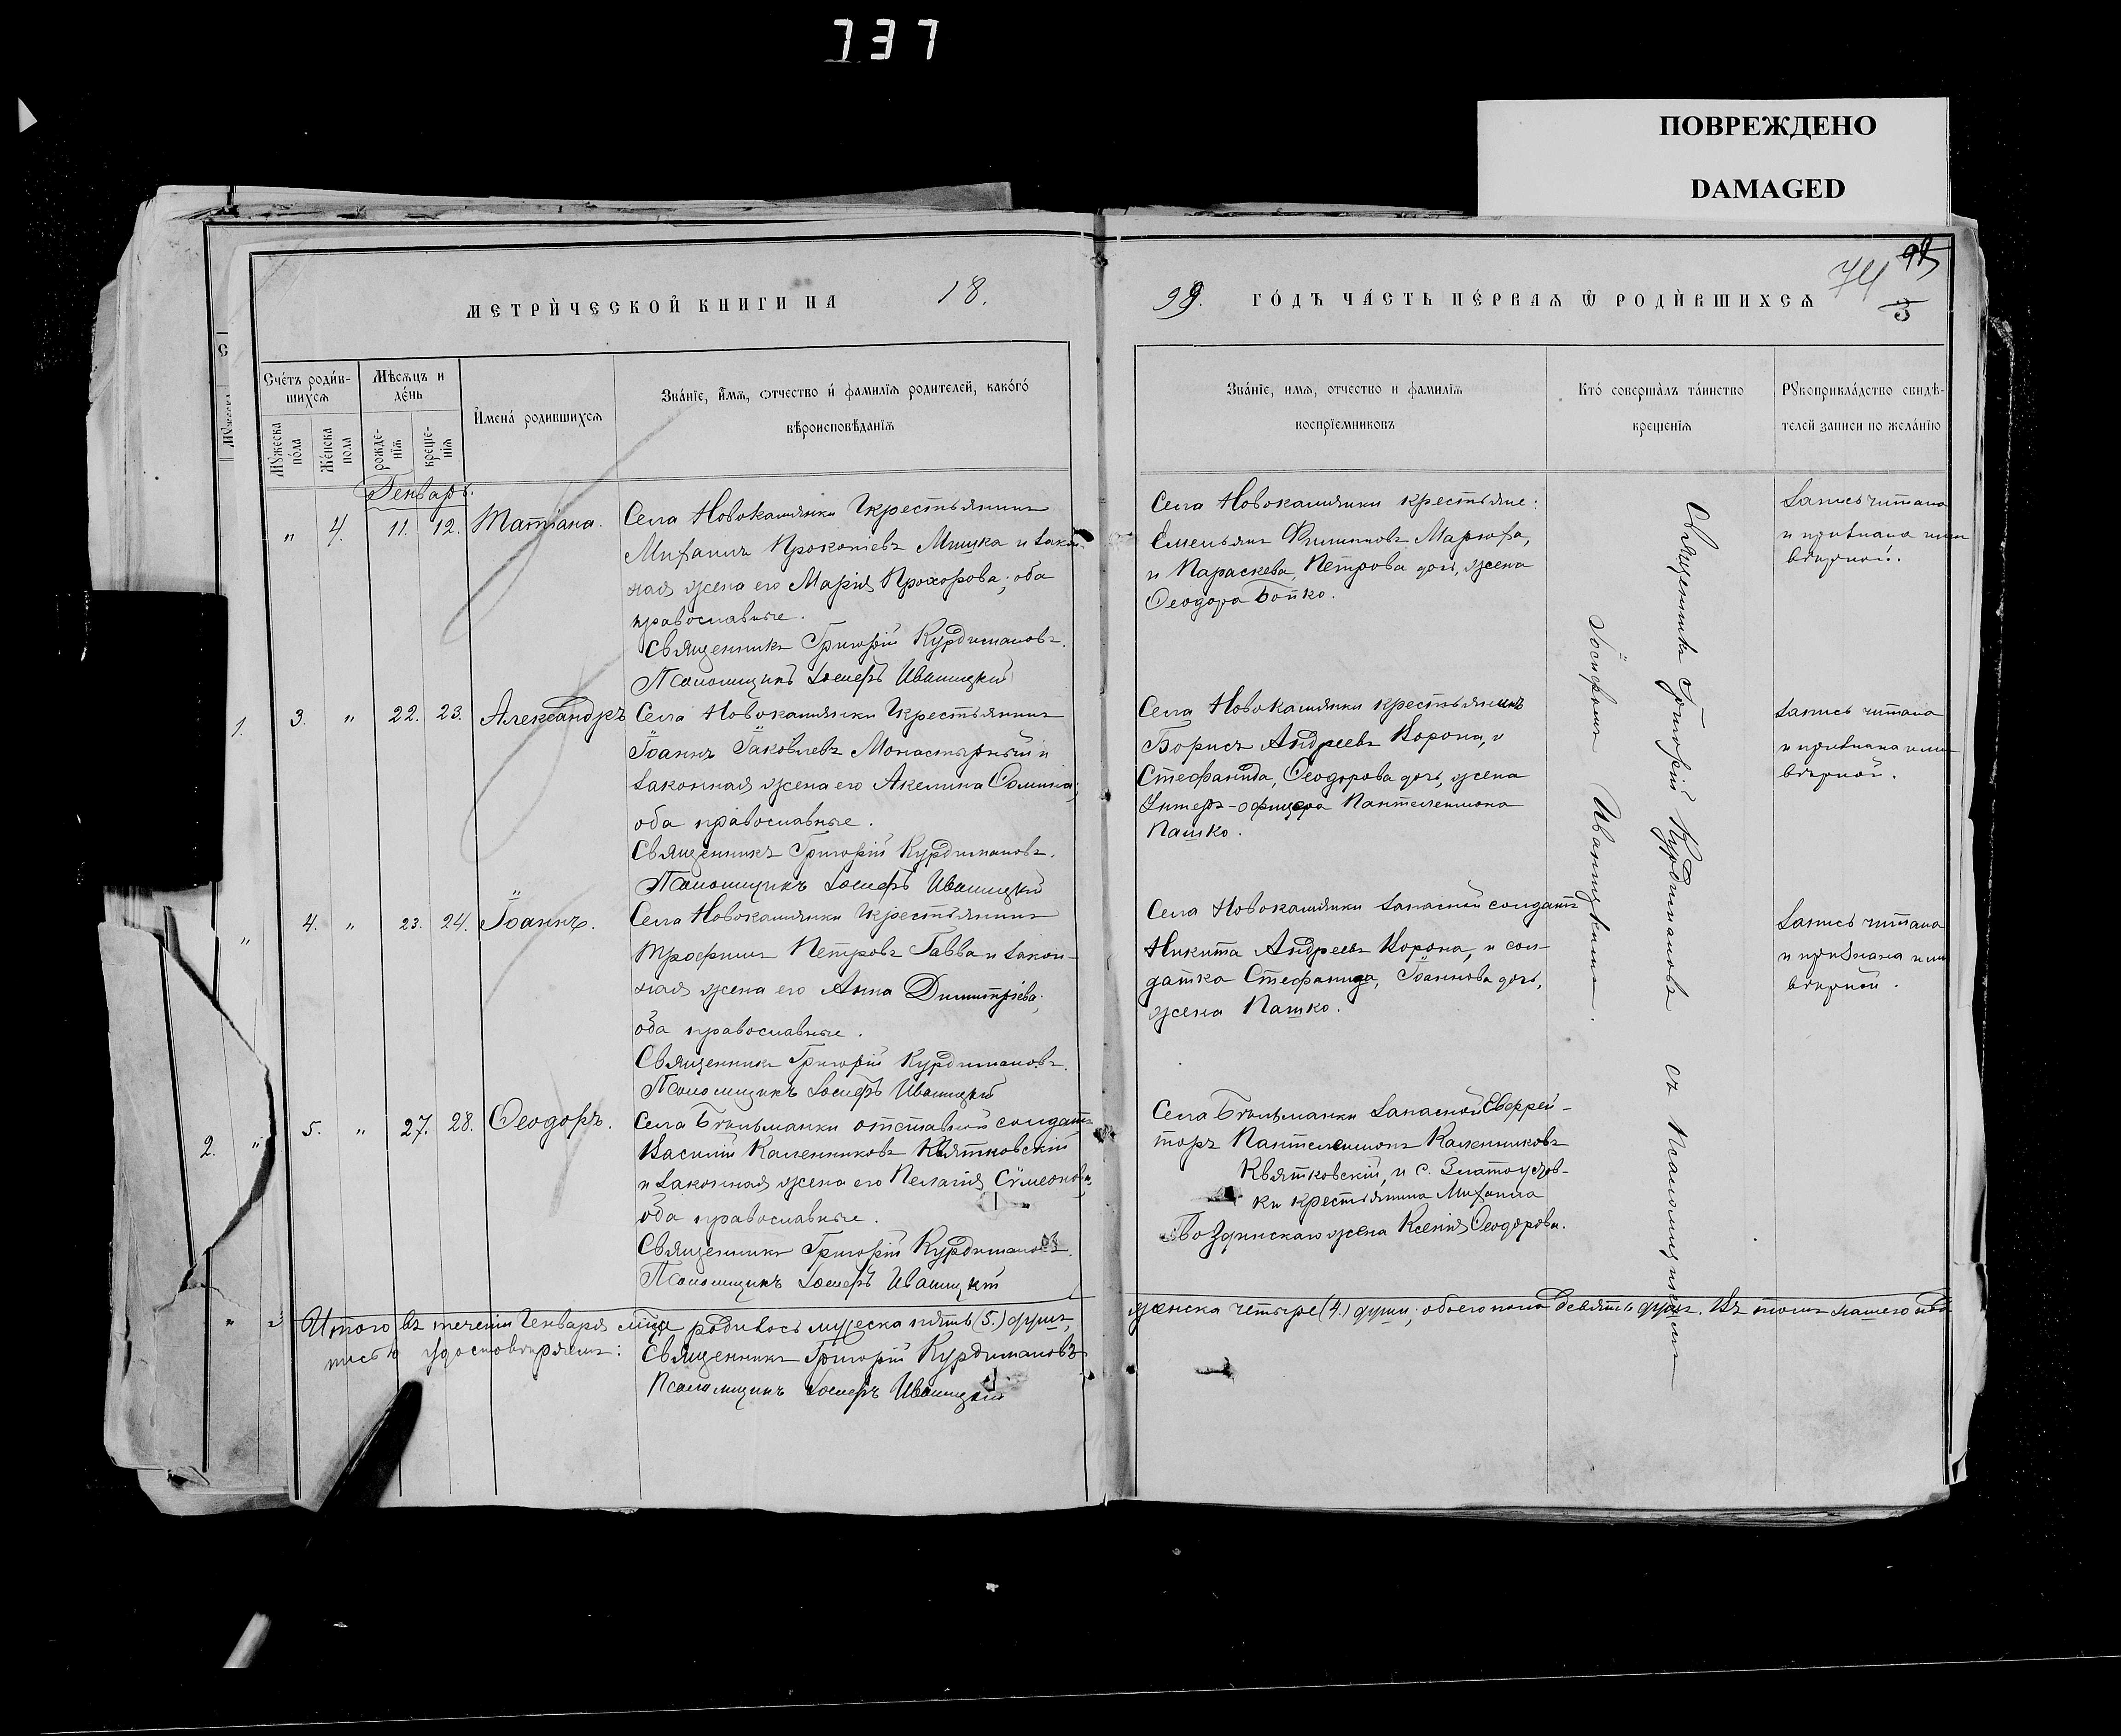 737
ПОВРЕЖДЕНО
DAMAGED
МЕТРИ́ЧЕСКОЙ КНИГИ НА 18.
99. ГО́ДЪ ЧА́СТЬ ПЕ́РВАѦ Ѡ҆ РОДИ́ВШИХСѦ
74
95
Сче́тъ роди́в-
шихсѧ
Мѣсѧцъ и
де́нь
Мꙋжеска
по́ла
Же́нска
пола
рожде-
нїѧ
креще-
нїѧ
И҆мена́ родившихсѧ
Зва́нїе, и҆́мѧ, ѻтчество и҆ фамилїѧ родителей, како́гѡ́
вѣроисповѣданїѧ
Зва́нїе, имѧ, отчество и фамилїѧ
воспрїемниковъ
Кто́ соверша́лъ та́инство
крещенїѧ
Рꙋкоприкла́дство свидѣ-
телей записи по жела́нїю
Генварь.
" 4. 11. 12. Татіана.
Села Новокамянки крестьянинъ
Михаилъ Прокопіевъ Мишка и закон-
ная жена его Марія Прохорова; оба
православные.
Священникъ Григорій Курдимановъ.
Псаломщикъ Іосифъ Иваницкій
Села Новокамянки крестьяне:
Емельянъ Филиповъ Марюфа,
и Параскева, Петрова дочь, жена
Ѳеодора Бойко.
Запись читана
и признана ими
вѣрной.
3. " 22. 23. Александръ
Села Новокамянки крестьянинъ
Іоаннъ Іаковлевъ Монастырный и
законная жена его Акелина Ѳомина;
оба православные.
Священникъ Григорій Курдимановъ.
Псаломщикъ Іосифъ Иваницкій
Села Новокамянки крестьянинъ
Борисъ Андреевъ Ворона, и
Стефанида, Ѳеодорова дочь, жена
Унтеръ-офицера Пантелеимона
Пашко.
Запись читана
и признана ими
вѣрной.
4. " 23. 24. Іоаннъ.
Села Новокамянки крестьянинъ
Трофимъ Петровъ Гавва и закон-
ная жена его Анна Димитріева;
оба православные.
Священникъ Григорій Курдимановъ.
Псаломщикъ Іосифъ Иваницкій
Села Новокамянки запасной солдатъ
Никита Андреевъ Ворона, и сол-
датка Стефанида, Іоаннова дочь,
жена Пашко.
Запись читана
и признана ими
вѣрной.
5. " 27. 28. Ѳеодоръ.
Села Бѣльманки отставной солдатъ
Василій Каленниковъ Квятковскій
и законная жена его Пелагія Сѵмеонова,
оба православные.
Священникъ Григорій Курдимановъ.
Псаломщикъ Іосифъ Иваницкій
Села Бѣльманки запасной Ефрей-
торъ Пантелеимонъ Каленниковъ
Квятковскій, и с. Златоустов-
ки крестьянина Михаила
жена Ксенія Ѳеодорова.
Священникъ Григорій Курдимановъ съ Псаломщикомъ
Іосифомъ Иваницкимъ.
Итого въ теченіи Генваря мѣца родилось мужеска пять (5.) душъ,
женска четыре (4.) души; обоего пола девять душъ. Въ томъ нашего под-
писью удостовѣряемъ:
Священникъ Григорій Курдимановъ
Псаломщикъ Іосифъ Иваницкій
1.
2.